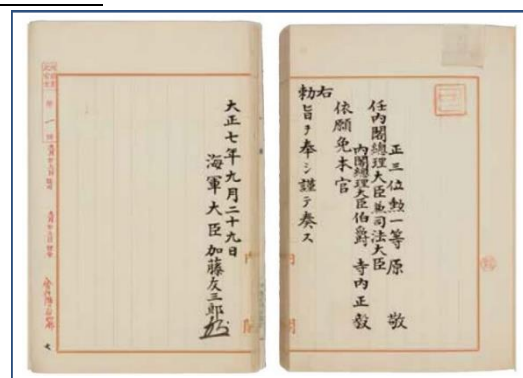 正三位勲一等原敬
任内閣總理大臣兼司法大臣
内閣總理大臣伯爵 寺内正毅
依願免本官
右
勅旨ヲ奉シ謹テ奏ス
大正七年九月二十九日
海軍大臣加藤友三郎